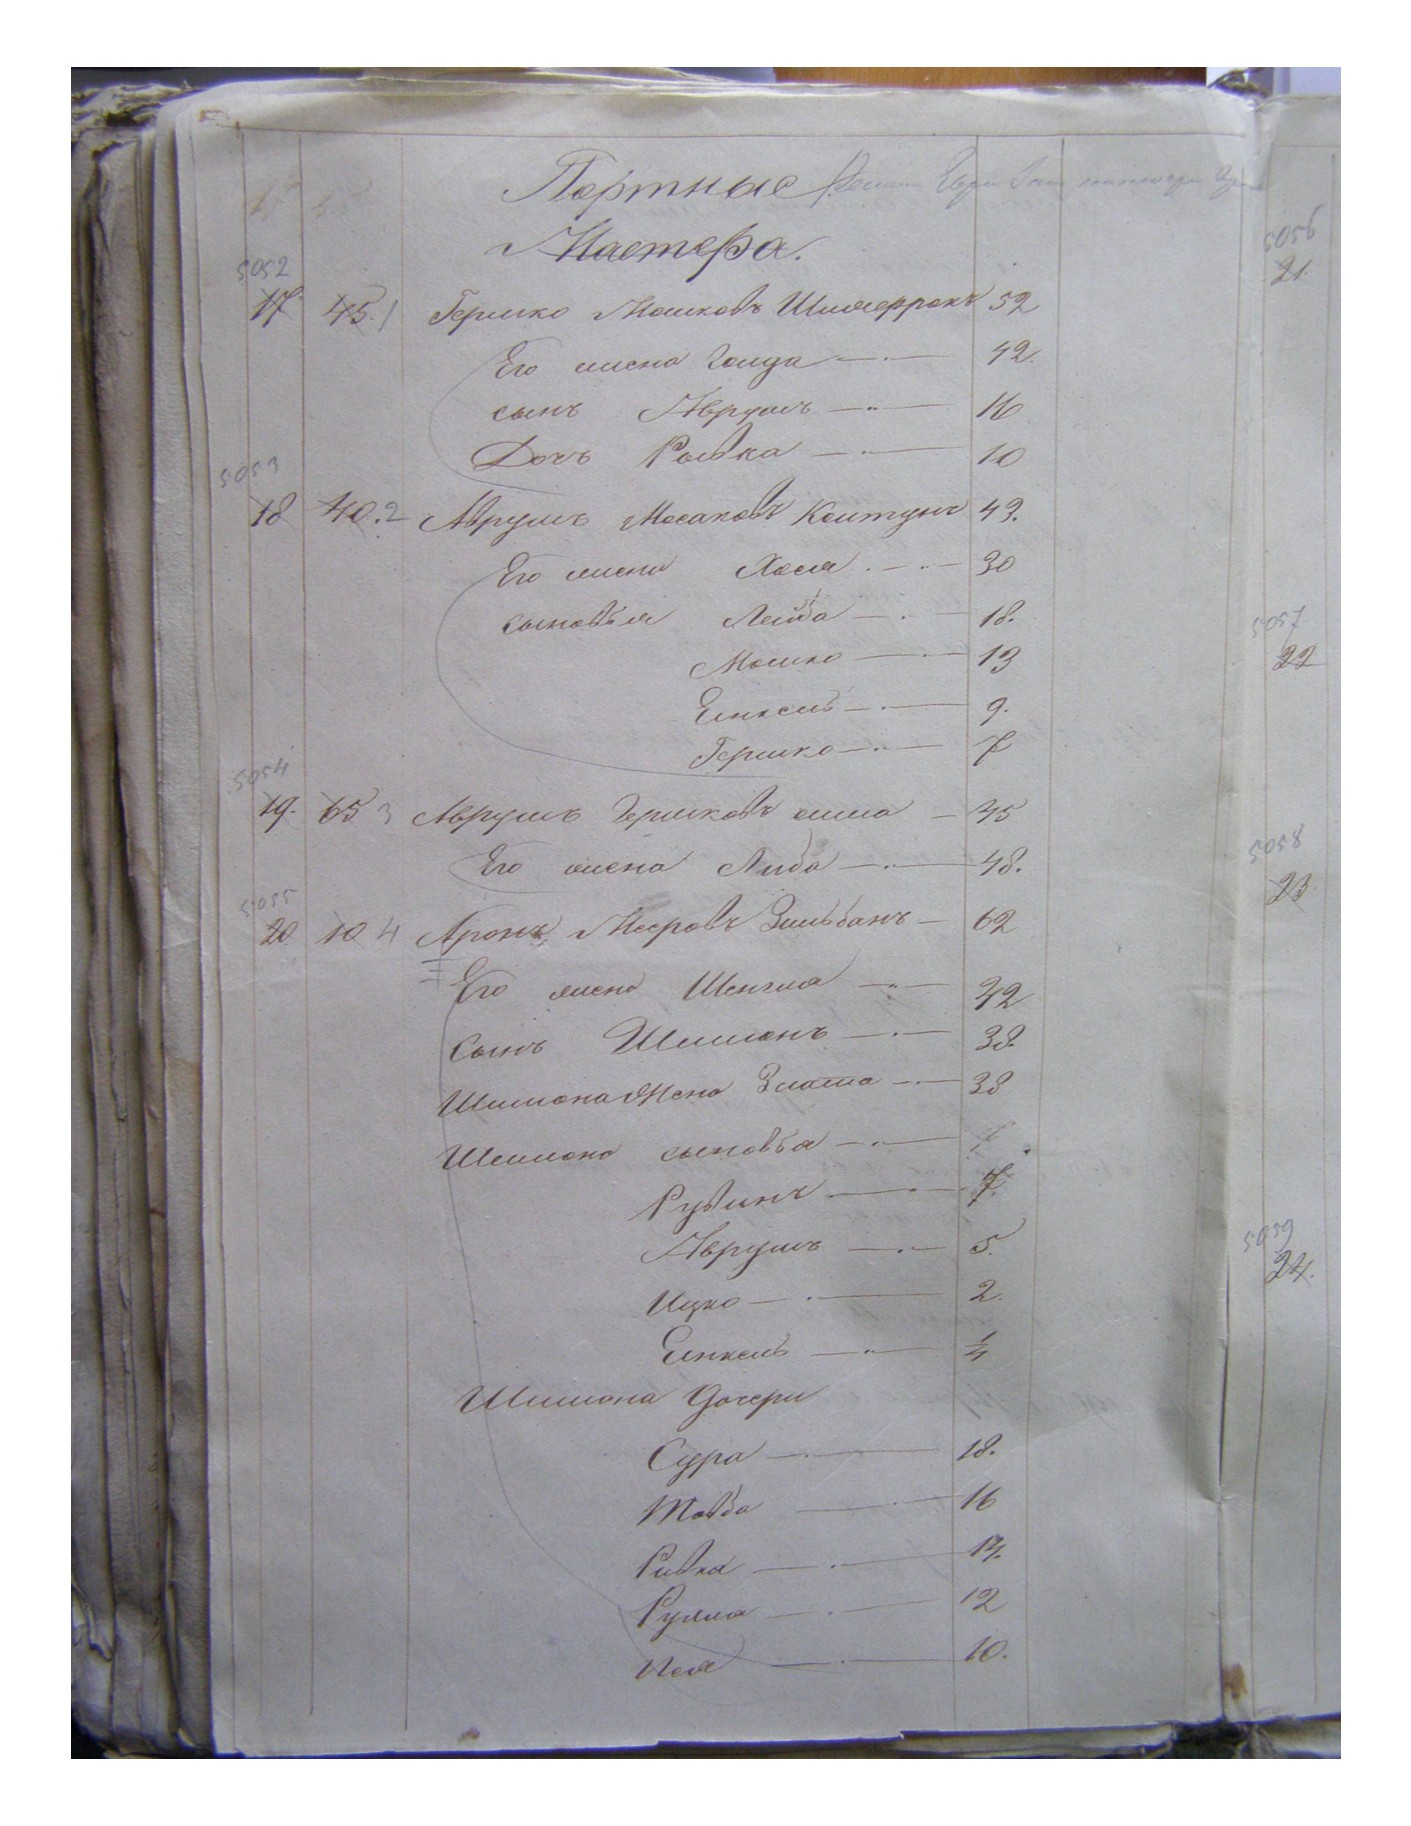 Портные
Мастера.
5052
17. 45. 1 Гершко Мошковъ 52
Его жена Голда 42.
сынъ Аврумъ 16
Дочь Ривка 10
5053
18 40. 2 Аврумъ Мосаковъ Колтунъ 43.
Его жена Хася 30
сыновья Лейба 18.
Мошко 13
Еинкель 9.
Гершко 7
5054
19. 65 3 Аврумъ Гершковъ 45
Его жена Либа 48.
5055
20 10 4 Аронъ Мееровъ Зильбанъ 62
Его жена 42
Сынъ Шлиманъ 38.
Жена Злата 38
сыновья
Рувинъ 7.
Аврумъ 5.
Ицко 2.
Еинкель 1/4
дочери
Сура 18.
Товба 16
Ривка 14.
Рухля 12
10.
5056
21.
5057
22
5058
23
5059
24.